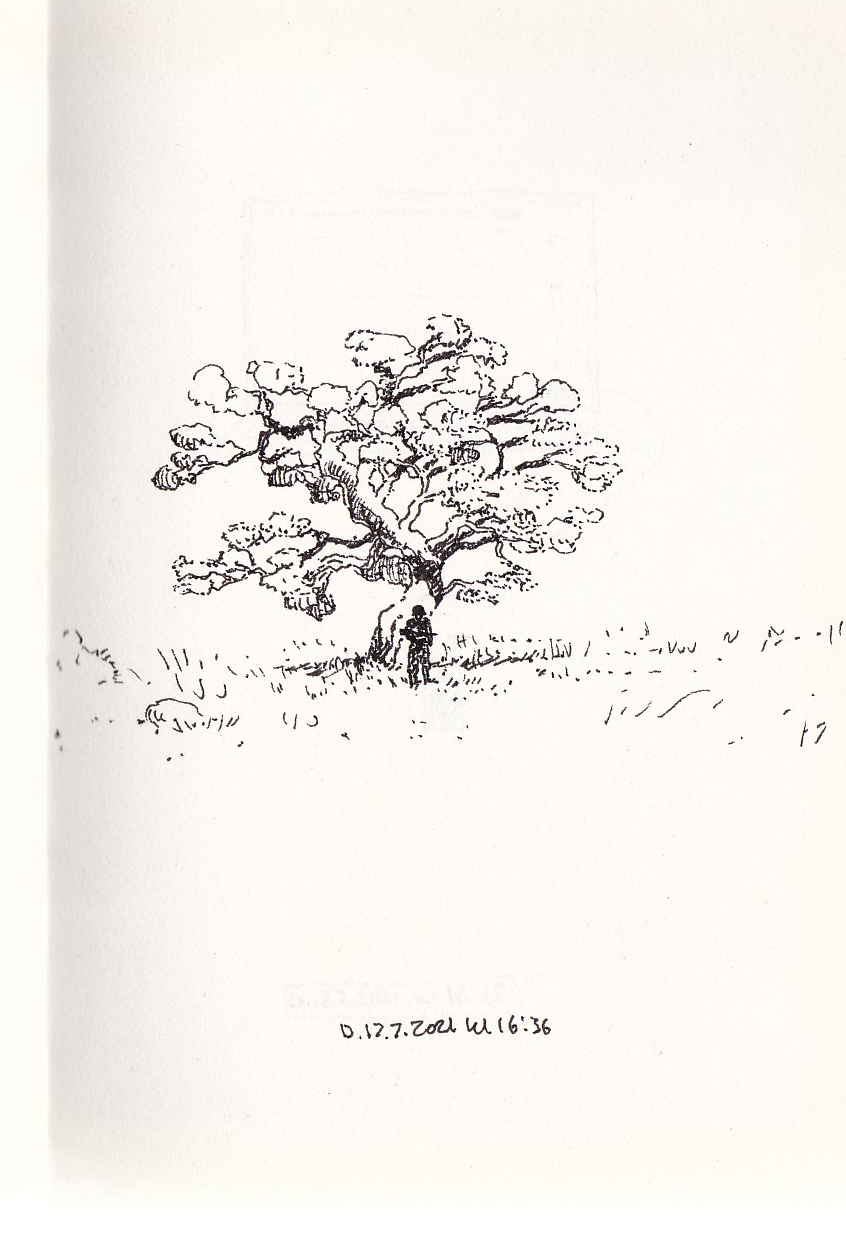 D.17.7.2021 kl 16:36